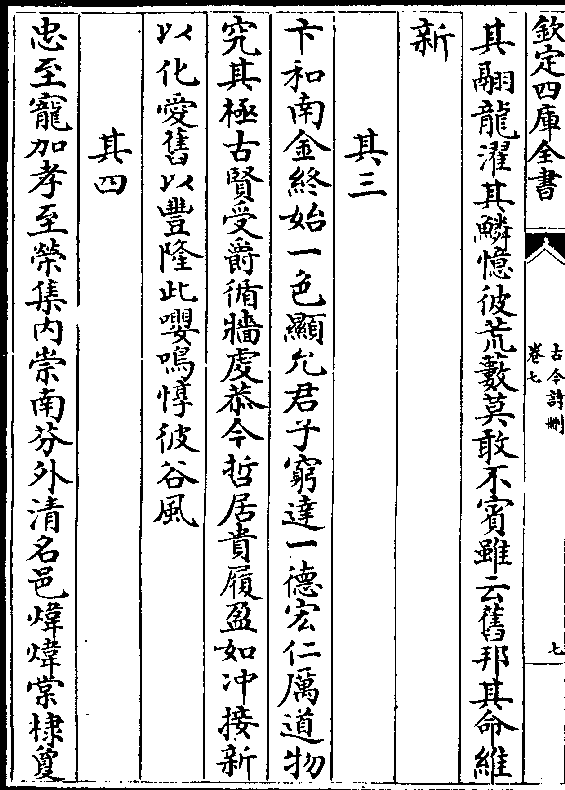 欽定四庫全書
古今詩刪
卷七
七
其翮龍濯其鱗憶彼荒藪莫敢不賓雖云舊邦其命維
新
其三
卞和南金終始一色顯允君子窮達一德宏仁厲道物
究其極古賢受爵循牆虔恭今哲居貴履盈如冲接新
以化愛舊以豐隆此嚶鳴惇彼谷風
其四
忠至寵加孝至榮集内崇南芬外清名邑煒煒棠棣敻